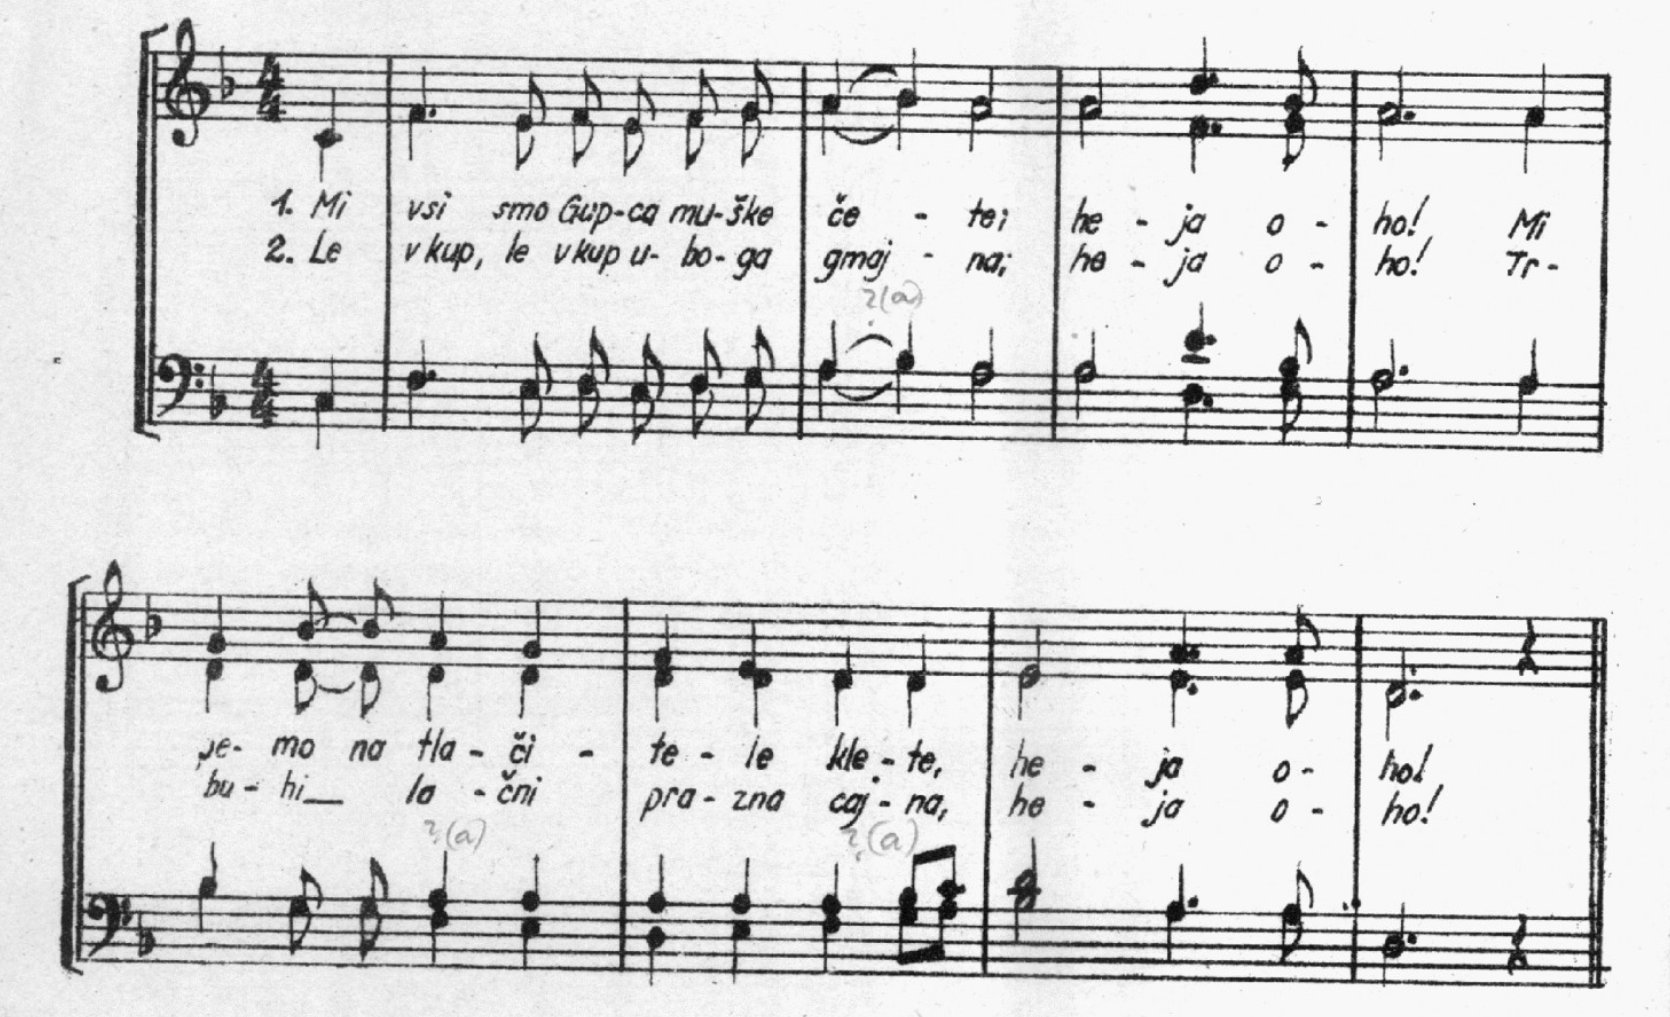 1. Mi vsi smo Gup-ca mu-ške če - te; he - ja o - ho! Mi
2. Le vkup, le vkup u- bo- ga gmaj - na; he - ja o - ho! Tr-
?(a)
je- mo na tla - či - te - le kle - te, he - ja o - ho!
bu - hi__ la - čni pra - zna caj - na, he - ja o - ho!
?(a) ?(a)